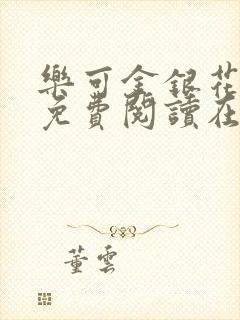 樂可金銀花
免費閱讀在
董雲